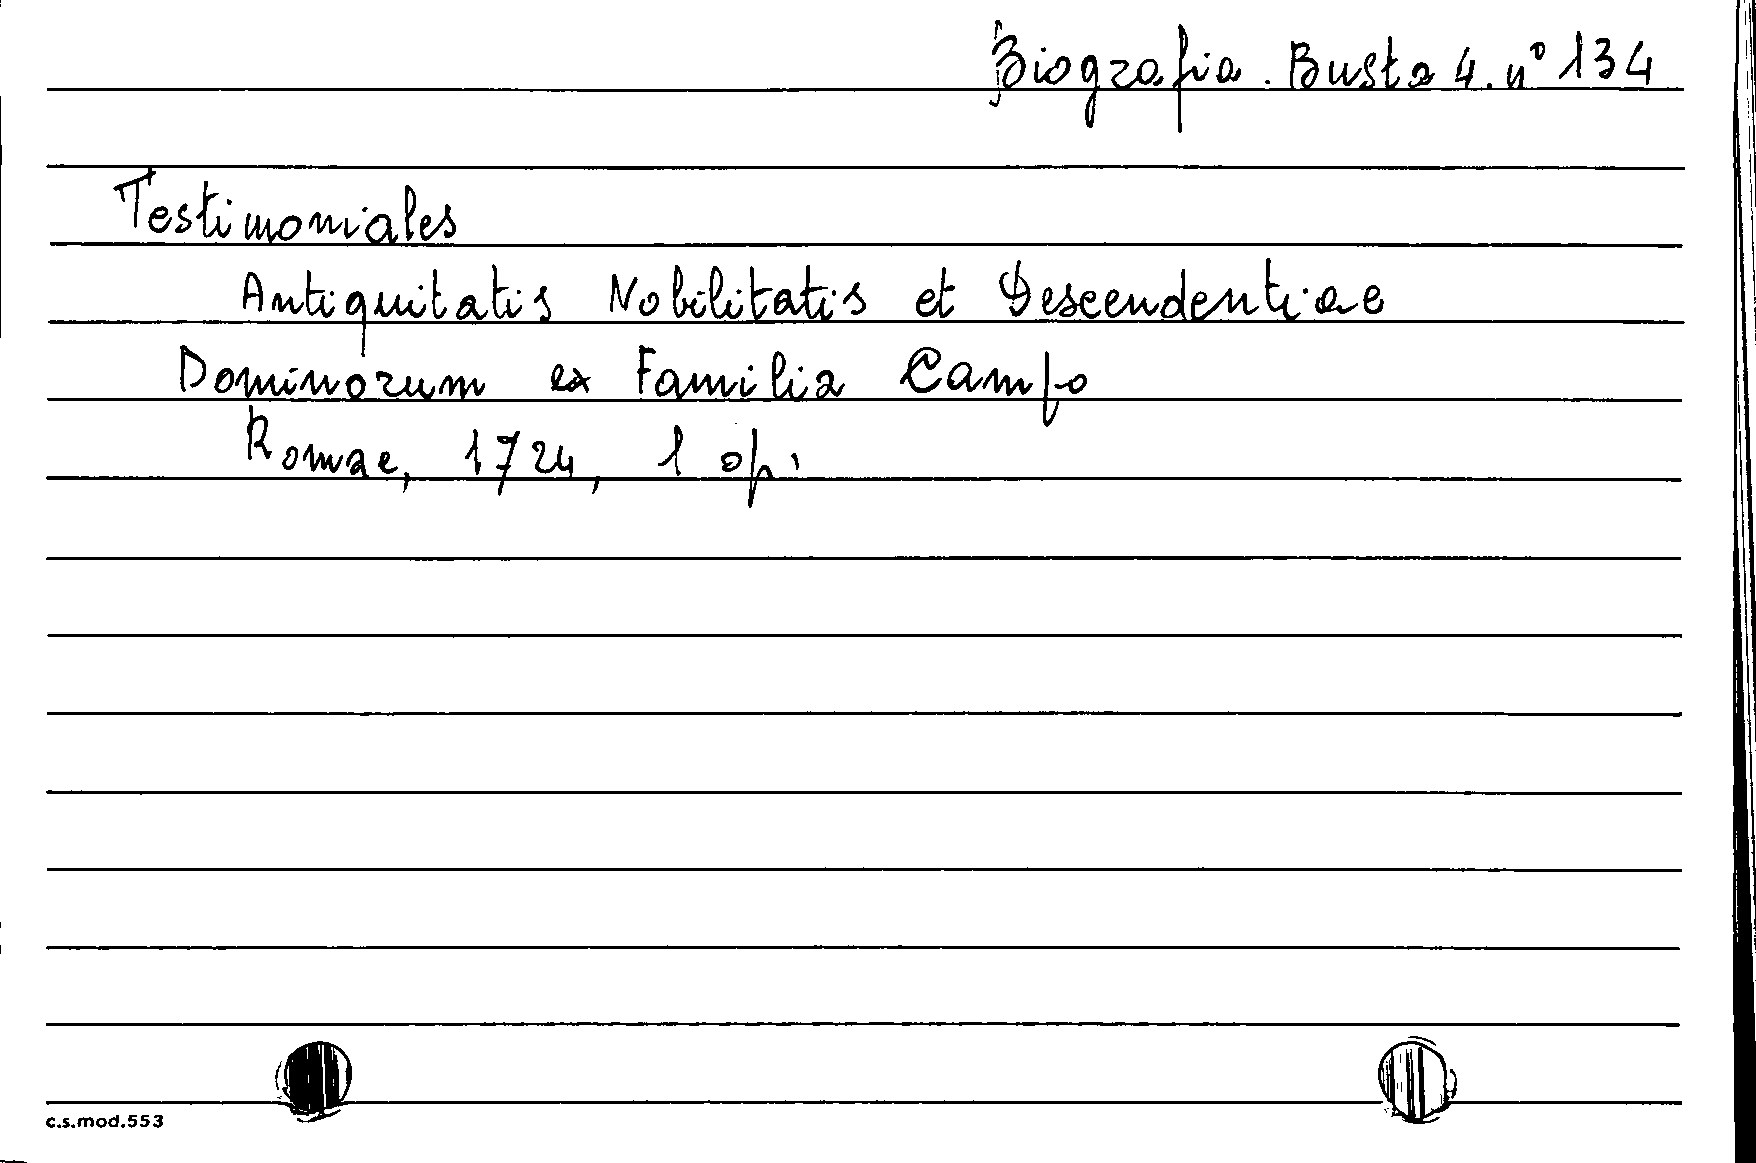 Biografia. Busta 4. n° 134
Testimoniales
Antiquitatis Nobilitatis et Descendentiae
Dominorum ex Familia Campo
Romae, 1724, 1 op.
c.s.mod.553